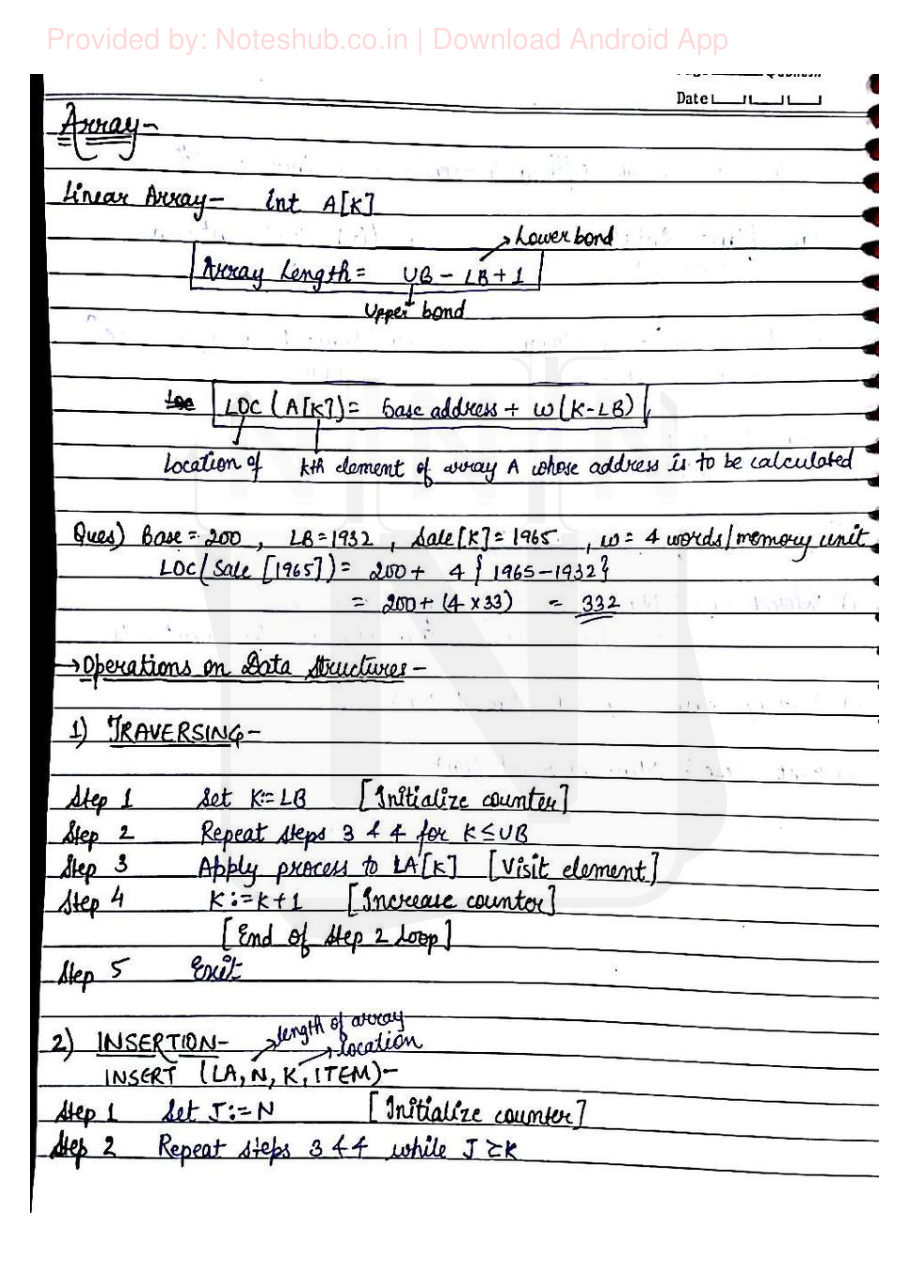 Provided by: Noteshub.co.in | Download Android App
Date
Array-
Linear Array- Int A[K]
Lower bond
Array Length = UB - LB + 1
Upper bond
LOC (A[K]) = base address + w (K-LB)
Location of kth element of array A whose address is to be calculated
Ques) Base = 200, LB = 1932, Sale[K] = 1965, w = 4 words/memory unit
LOC(Sale [1965]) = 200 + 4 { 1965-1932}
= 200 + (4 x 33) = 332
→ Operations on Data Structures -
1) TRAVERSING -
Step 1 Set K:= LB [Initialize counter]
Step 2 Repeat steps 3 & 4 for K ≤ UB
Step 3 Apply process to LA[K] [Visit element]
Step 4 K:= K+1 [Increase counter]
[End of Step 2 Loop]
Step 5 Exit
2) INSERTION- length of array
location
INSERT (LA, N, K, ITEM)-
Step 1 Set J:= N [Initialize counter]
Step 2 Repeat steps 3 & 4 while J ≥ K